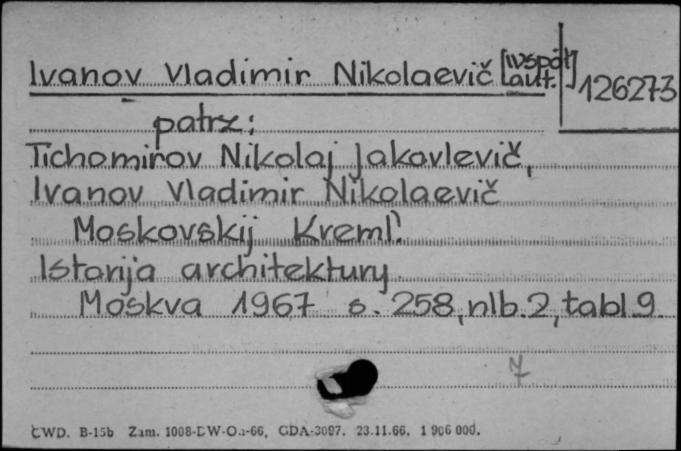 Ivanov Vladimir Nikolaevič [współ
aut.] 126273
patrz:
Tichomirov Nikolaj Jakovlevič,
Ivanov Vladimir Nikolaevič
Moskovskij Kreml'.
Istorija architektury.
Moskva 1967 s. 258, nlb. 2, tabl. 9.
7
CWD. B-15b Zam. 1008-DW-Oa-66, GDA-3097. 23.11.66. 1 906 000.